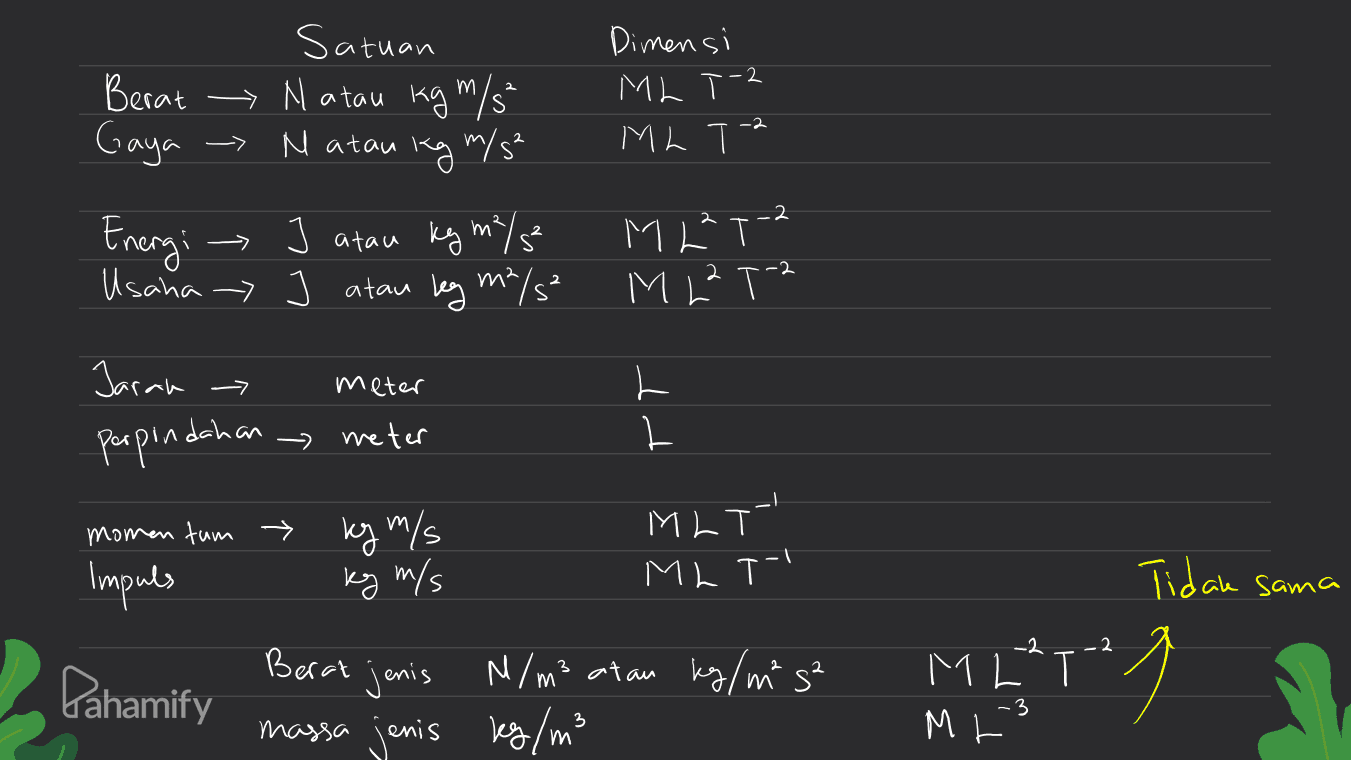 Satuan Dimensi
Berat → N atau kg m/s² ML T⁻²
Gaya → N atau kg m/s² ML T⁻²
Energi → J atau kg m²/s² M L² T⁻²
Usaha → J atau kg m²/s² M L² T⁻²
Jarak → meter L
perpindahan → meter L
momentum → kg m/s MLT⁻¹
Impuls kg m/s ML T⁻¹
Tidak sama
Berat jenis N/m³ atau kg/m² s² M L⁻² T⁻²
massa jenis kg/m³ M L⁻³
Pahamify